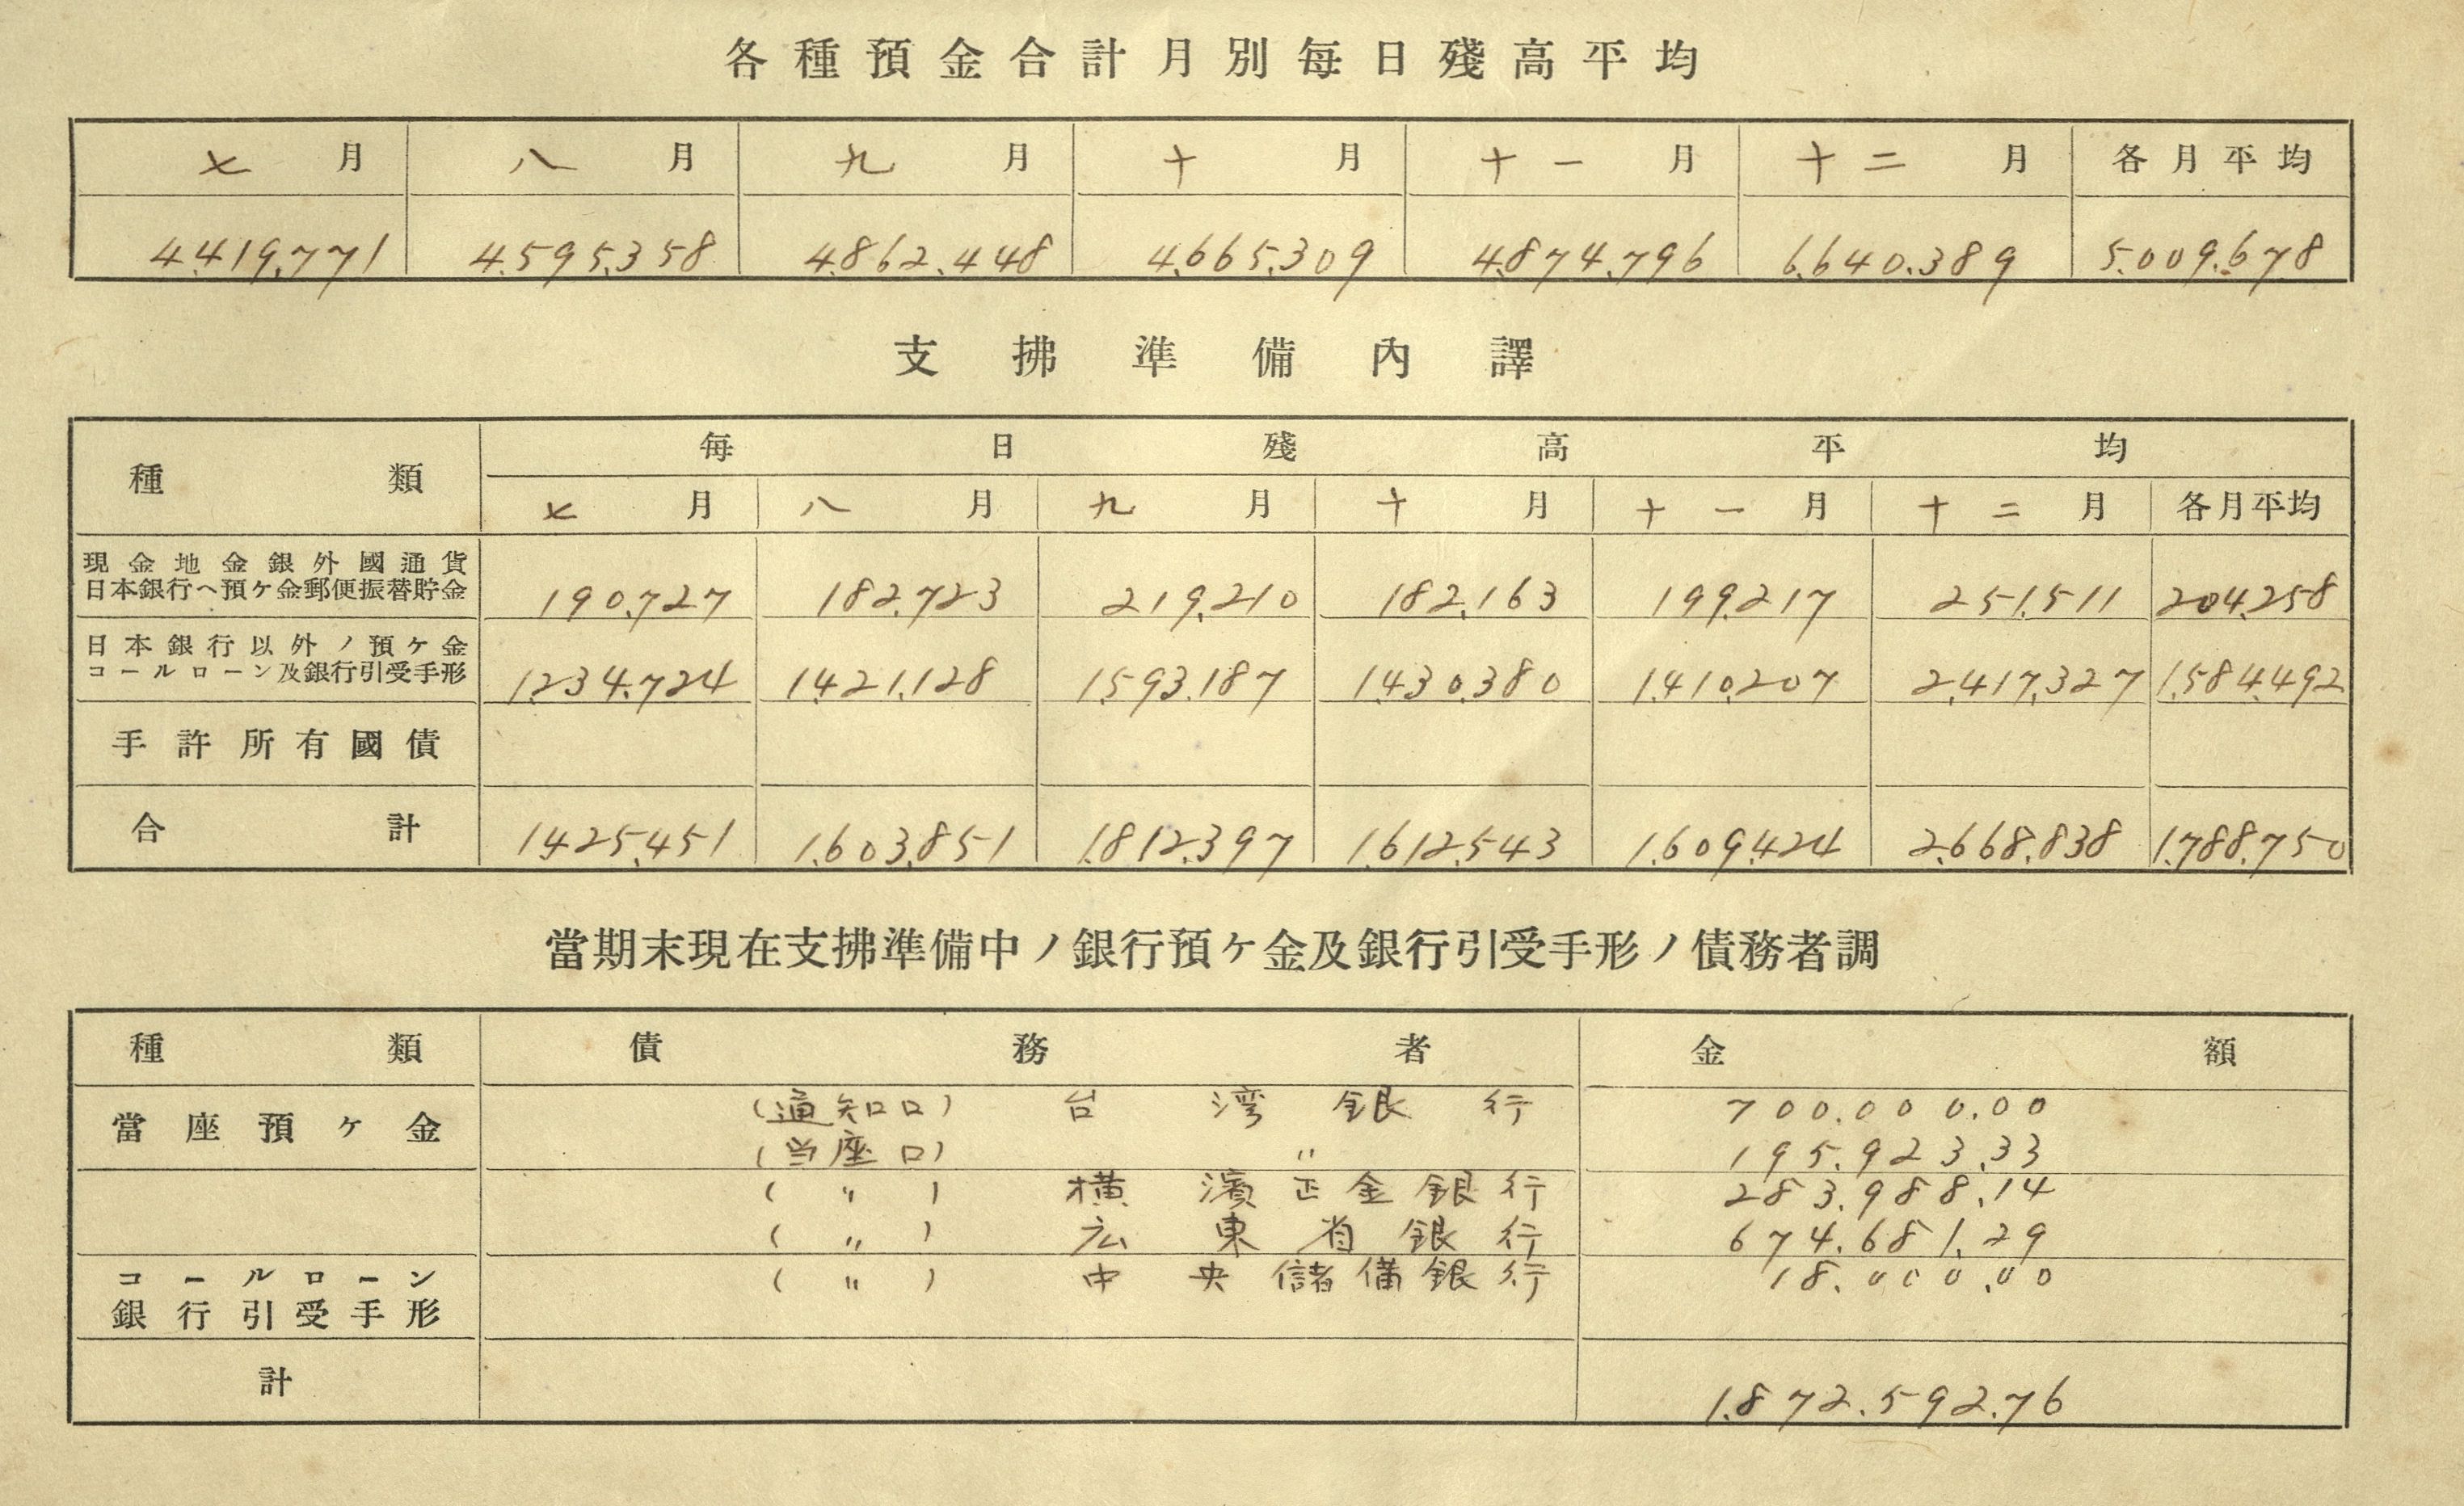 各種預金合計月別每日殘高平均
七月 八月 九月 十月 十一月 十二月 各月平均
4.419.771 4.595.358 4.862.448 4.665.309 4.874.796 6.640.389 5.009.678
支拂準備內譯
種類 每日殘高平均
七月 八月 九月 十月 十一月 十二月 各月平均
現金地金銀外國通貨
日本銀行ヘ預ケ金郵便振替貯金 190.727 182.723 219.210 182.163 199.217 251.511 204.258
日本銀行以外ノ預ケ金
コールローン及銀行引受手形 1.234.724 1.421.128 1.593.187 1.430.380 1.410.207 2.417.327 1.584.492
手許所有國債
合計 1.425.451 1.603.851 1.812.397 1.612.543 1.609.424 2.668.838 1.788.750
當期末現在支拂準備中ノ銀行預ケ金及銀行引受手形ノ債務者調
種類 債務者 金額
當座預ケ金 (通知口) 台湾銀行 700.000.00
(当座口) 〃 195.923.33
( 〃 ) 横濱正金銀行 283.988.14
( 〃 ) 広東省銀行 674.681.29
コールローン ( 〃 ) 中央儲備銀行 18.000.00
銀行引受手形
計 1.872.592.76